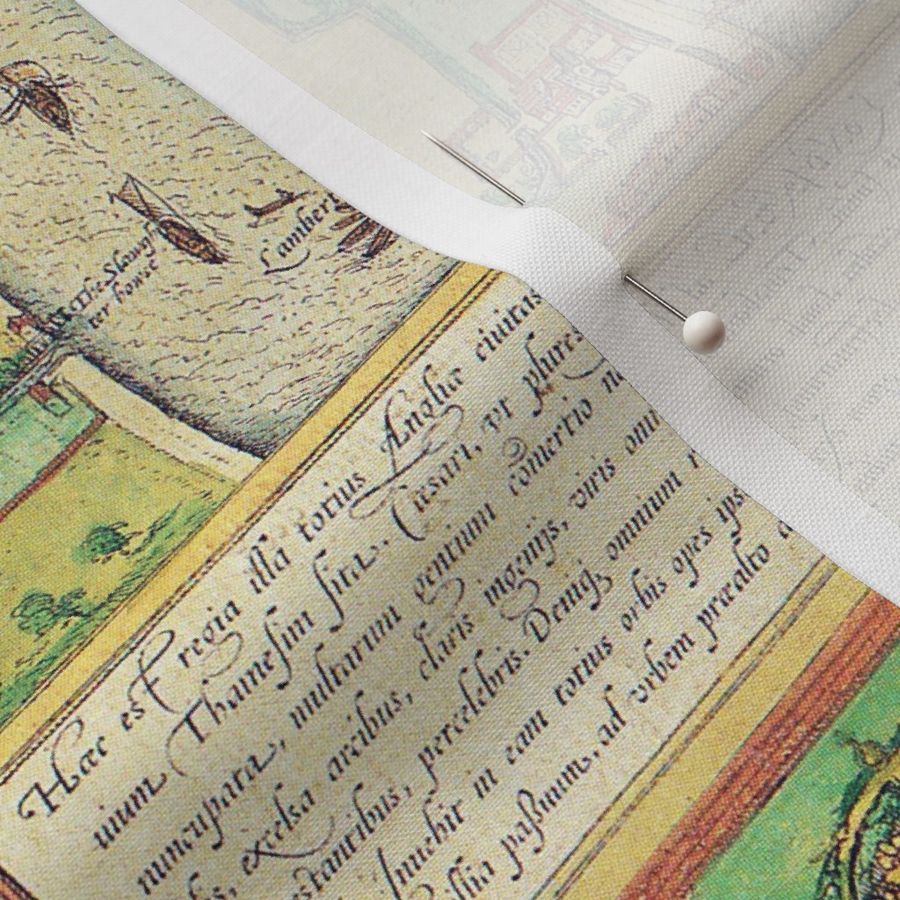 The Slawgh
ter howse
Lambert
Hæc est regia illa totius Angliæ ciuitas
uium Thamesim sita. Cæsari, vt plures
nuncupata, multarum gentium comertio n
excelsa arcibus, claris ingenijs, viris omn
stantibus, percelebris. Deniq, omnium
Inuehit in eam totius orbis opes ips
illia paßuum, ad vrbem præalto